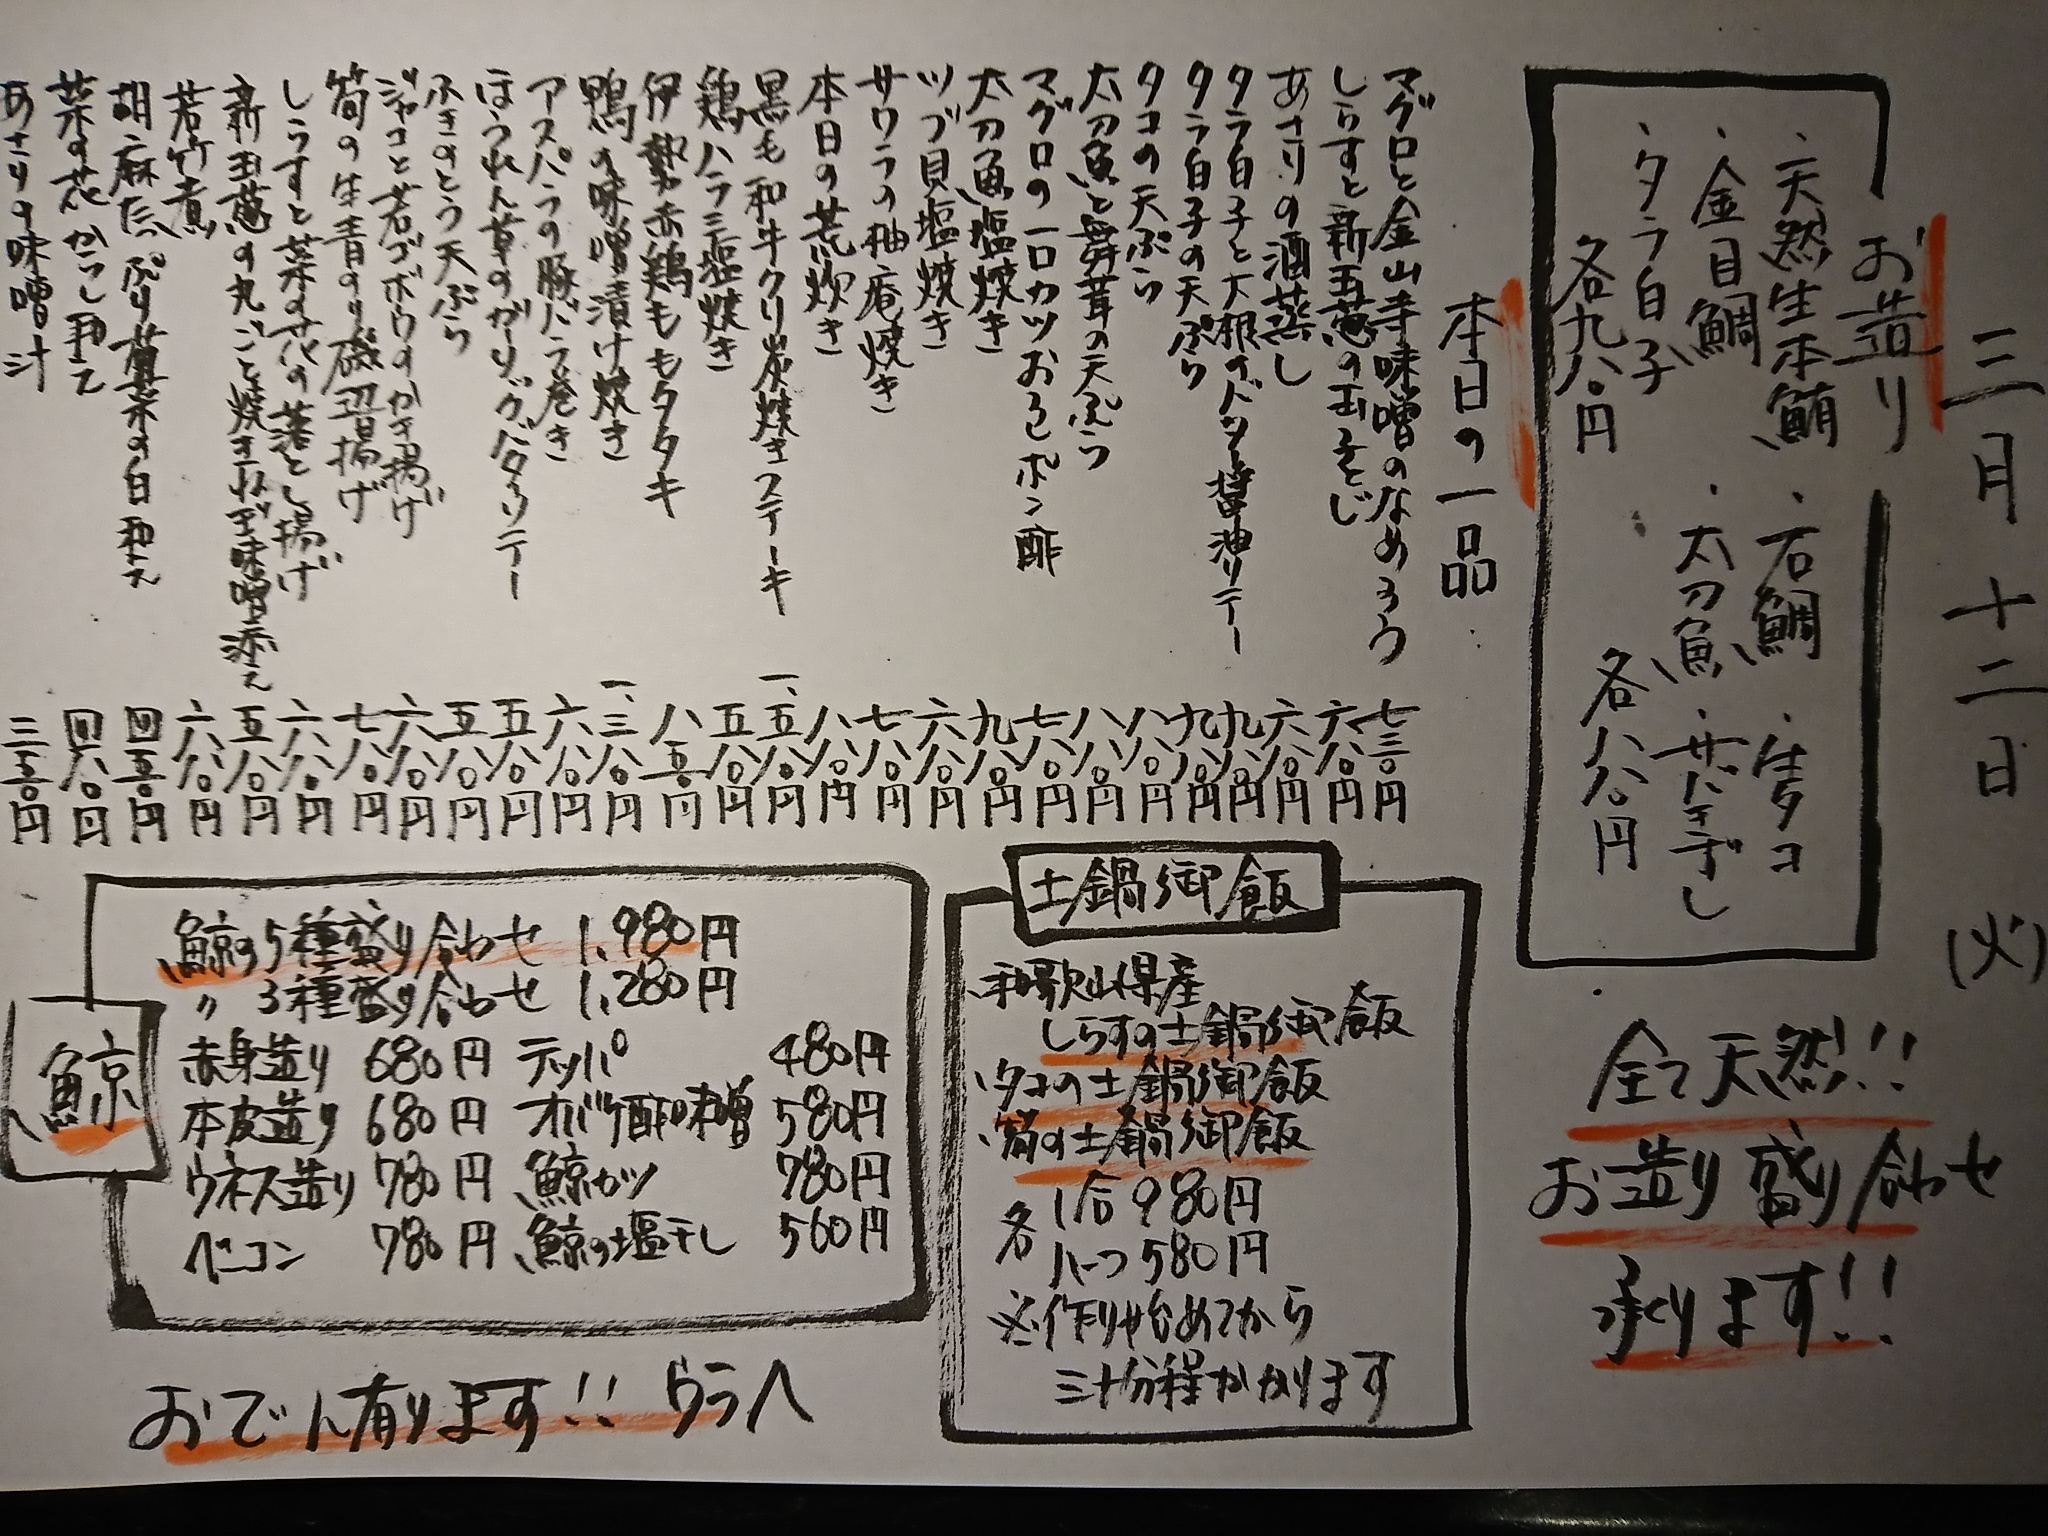 三月十二日(火)
お造り
・天然生本鮪
・金目鯛
・タラ白子
各九八〇円
・石鯛
・生タコ
・太刀魚
・サバキズシ
各八八〇円
全て天然!!
お造り盛り合わせ
承ります!!
本日の一品
マグロと金山寺味噌のなめろう 七三〇円
しらすと新玉葱の玉子とじ 六八〇円
あさりの酒蒸し 六八〇円
タラ白子と大根のバター醤油ソテー 九八〇円
タラ白子の天ぷら 九八〇円
タコの天ぷら 八八〇円
太刀魚と舞茸の天ぷら 八八〇円
マグロの一口カツおろしポン酢 七八〇円
太刀魚塩焼き 九八〇円
ツブ貝塩焼き 六八〇円
サワラの柚庵焼き 七八〇円
本日の荒炊き 八八〇円
黒毛和牛クリ炭焼きステーキ 一、五八〇円
鶏ハラミ塩焼き 五八〇円
伊勢赤鶏ももタタキ 八五〇円
鴨の味噌漬け焼き 一、三八〇円
アスパラの豚バラ巻き 六八〇円
ほうれん草のガーリックバターソテー 五八〇円
ふきのとう天ぷら 五八〇円
ジャコと若ゴボウのかき揚げ 六八〇円
筍の生青のり磯辺揚げ 七八〇円
しらすと菜の花の落とし揚げ 六八〇円
新玉葱の丸ごと焼き 味噌添え 五八〇円
若竹煮 六八〇円
胡麻たっぷり菊菜の白和え 四五〇円
菜の花からし和え 四八〇円
あさりの味噌汁 三五〇円
土鍋御飯
・和歌山県産
しらすの土鍋御飯
・タコの土鍋御飯
・筍の土鍋御飯
各 1合 980円
ハーフ 580円
※作り始めてから
三十分程かかります
鯨
鯨の5種盛り合わせ 1,980円
〃 3種盛り合わせ 1,280円
赤身造り 680円 テッパ 480円
本皮造り 680円 オバケ酢味噌 580円
ウネス造り 780円 鯨カツ 780円
ベーコン 780円 鯨の塩干し 560円
おでん有ります!! ウラへ